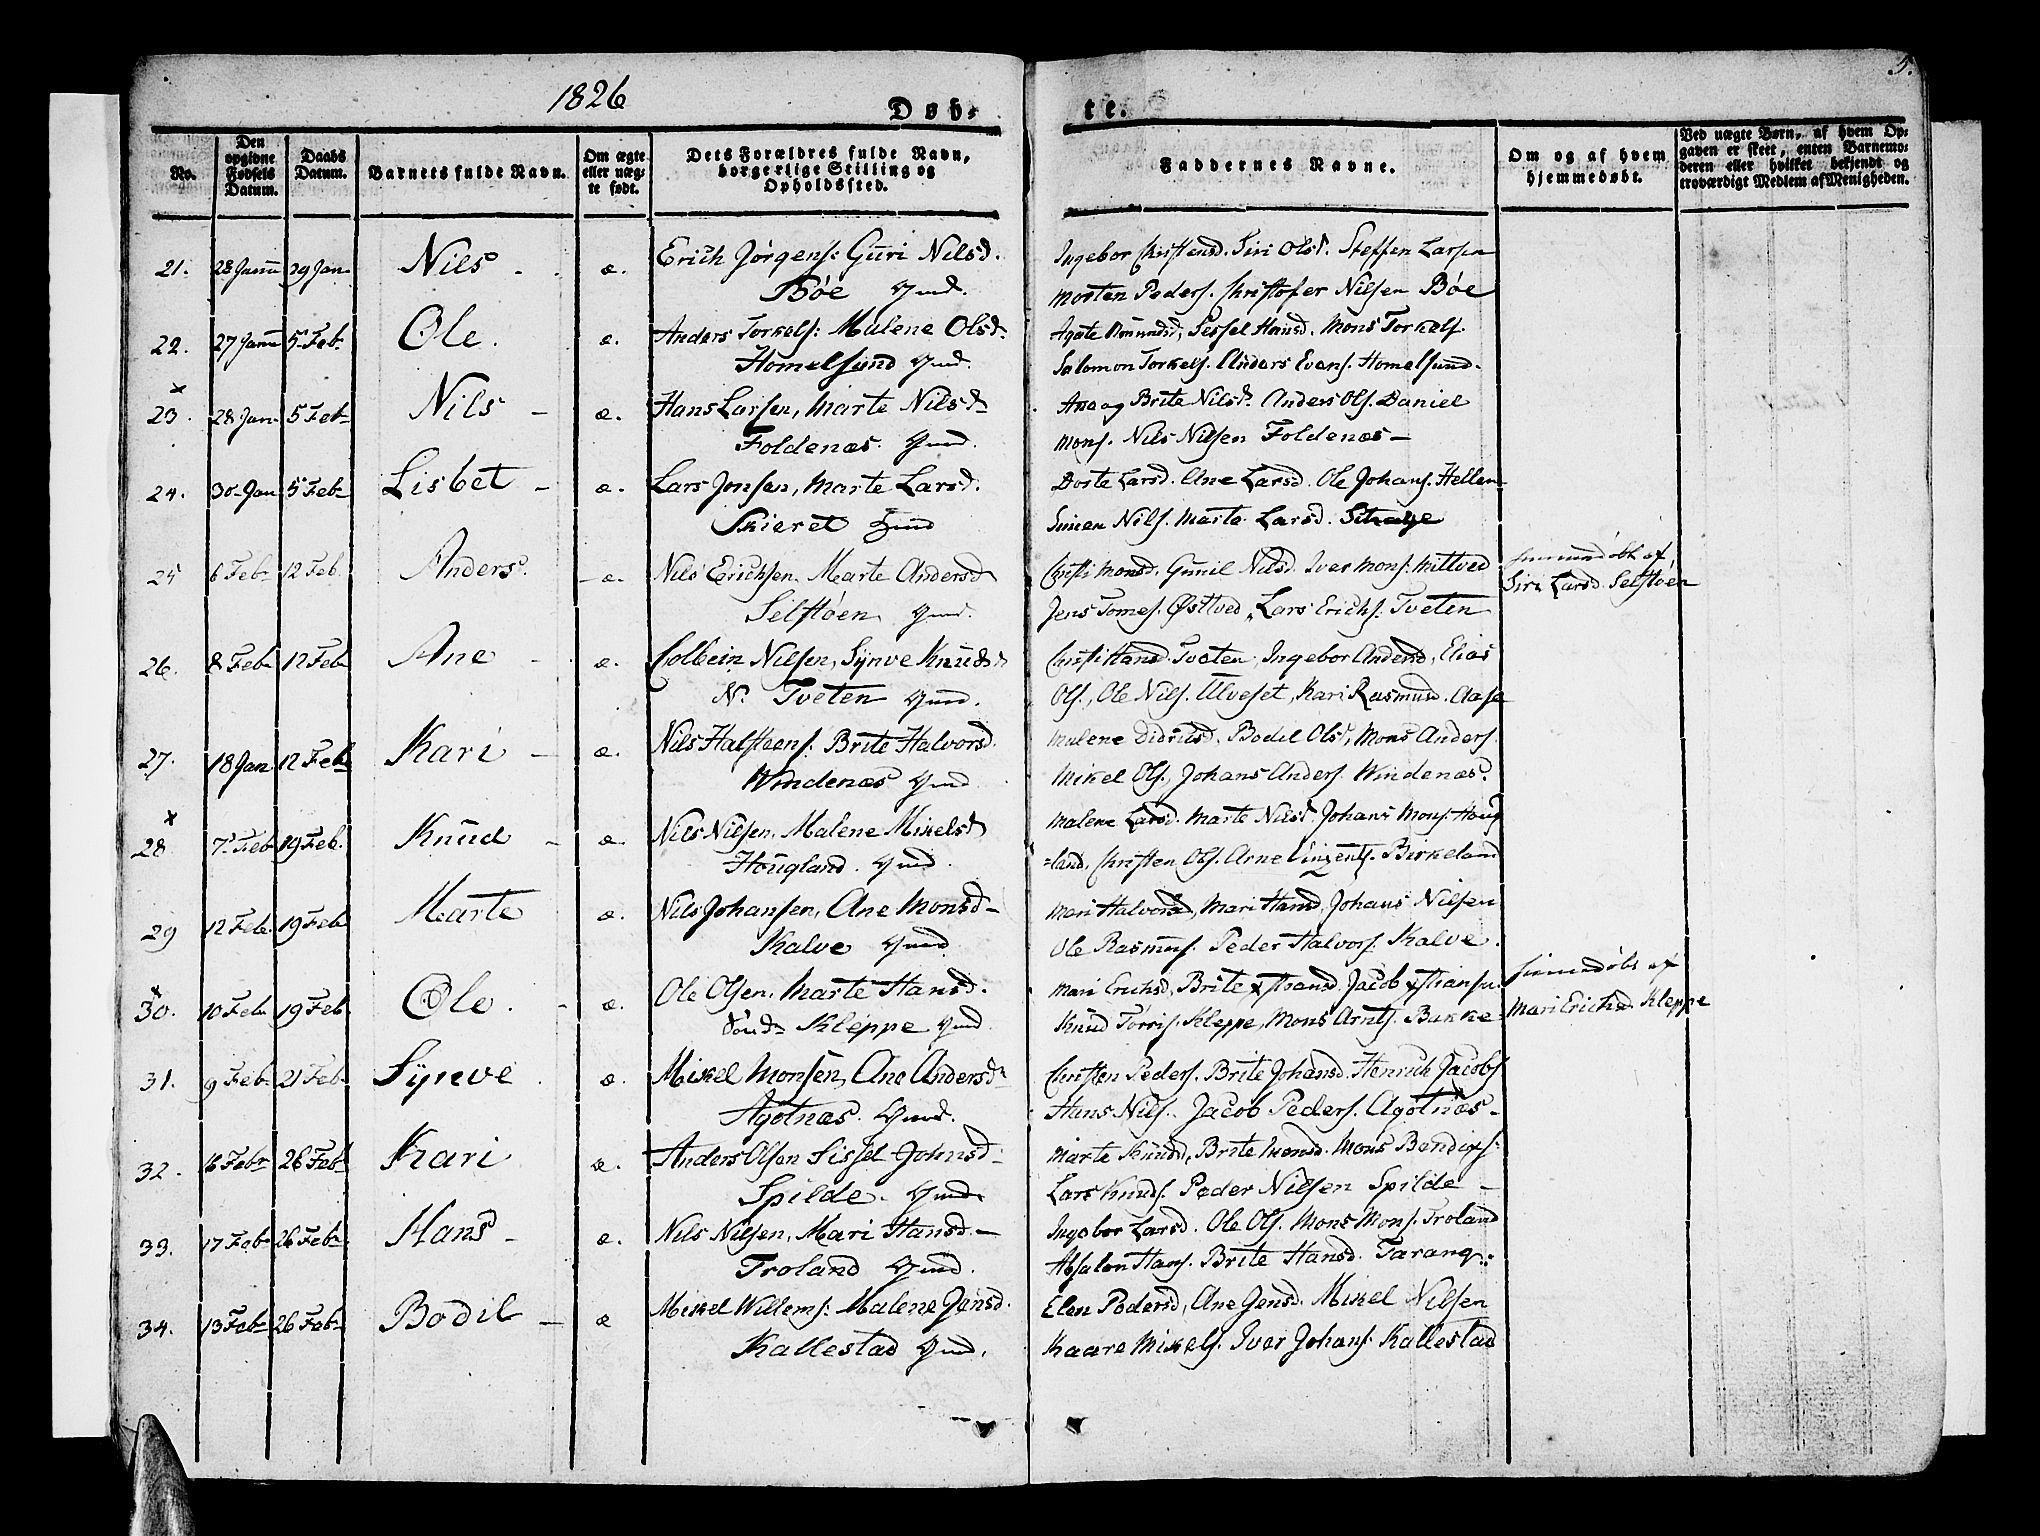 5.
1826
Døb-
te.
No.
Den opgivne Fødsels Datum.
Daabs Datum.
Barnets fulde Navn.
Om ægte eller uægte født.
Dets Forældres fulde Navn, borgerlige Stilling og Opholdssted.
Faddernes Navne.
Om og af hvem hjemmedøbt.
Ved uægte Børn, af hvem Opgaven er skeet, enten Barnemoderen eller hvilket bekjendt og troværdigt Medlem af Menigheden.
21. 28 Janu 29 Jan Nils æ. Erich Jørgens: Guri Nilsd. Ingebor Christensd. Siri Olsd. Steffen Larsen
Bøe Gmd. Morten Peders. Christofer Nilsen Bøe
22. 27 Janu 5 Feb. Ole. æ. Anders Torkels: Malene Olsd. Agate Sessel Hansd. Mons Torkels.
Homelsund Gmd. Salomon Torkels. Anders Evens. Homelsund.
x
23. 28 Jan 5 Feb Nils æ. Hans Larsen, Marte Nilsd Ana og Brite Nilsd. Anders Ols. Daniel
Foldenæs. Gmd. Mons. Nils Nilsen Foldenæs
24. 30 Jan 5 Feb Lisbet æ. Lars Jonsen, Marte Larsd. Dorte Larsd. Ane Larsd. Ole Johans. Hellen
Skieret Gmd Simen Nils. Marte Larsd.
25 6 Feb 12 Feb. Anders. æ. Nils Erichsen Marte Andersd Christi Monsd. Gunil Nilsd. Iver Mons. Mittved hiemmedøbt af
Selstøen Gmd. Jens Tomes. Østtved, Lars Erichs. Tveten Siri Larsd. Selstøen
26. 8 Feb 12 Feb Ane æ. Colbein Nilsen, Synve Knudsd Christi Hansd. Tveten, Ingebor Andersd, Elias
N. Tveten Gmd. Ols., Ole Nils. Ulveset, Kari Rasmusd. Aase
27. 18 Jan 12 Feb Kari æ. Nils Halsteens: Brite Halvorsd. Malene Didriksd. Bodil Olsd, Mons Anders.
Windenæs Gmd Mikel Ols, Johans Anders. Windenæs.
x
28 7 Feb 19 Feb. Knud æ. Nils Nilsen, Malene Mikelsd Malene Larsd. Marte Nilsd. Johans Mons. Houg
Hougland. Gmd. =land, Christen Ols. Arne Vinzents. Birkeland
29 12 Feb 19 Feb Marte æ. Nils Johansen, Ane Monsd Mari Halvorsd, Mari Hansd, Johans Nilsen
Kalve Gmd. Ole Rasmus. Peder Halvors. Kalve.
x
30. 10 Feb 19 Feb Ole. æ. Ole Olsen, Marte Hansd. Mari Erichsd, Brite Hansd. Jacob hiemmedøbt af
Kleppe Gmd. Knud Torris. Kleppe, Mons Arnts. Bakke Mari Erichsd Kleppe
31. 9 Feb 21 Feb Synve æ. Mikel Monsen, Ane Andersd Christen Peders. Brite Johansd. Henrich Jacobs
Agotnæs. Gmd. Hans Nils. Jacob Peders. Agotnæs
32. 16 Febr 26 Feb Kari æ. Anders Olsen Sissel Johnsd Marte Knudsd, Brite Monsd. Mons Bendixs:
Spilde. Gmd Lars Knuds. Peder Nilsen Spilde
33. 17 Feb 26 Feb. Hans æ. Nils Nilsen, Mari Hansd. Ingebor Larsd. Ole Ols. Mons Mons. Troland
Troland Gmd. Absalon Hans. Brite Hansd. Tarang.
34. 13 Feb 26 Feb Bodil æ Mikel Willems: Malene Jensd. Elen Pedersd, Ane Jensd. Mikel Nilsen
Kallestad Gmd. Kaare Mikels. Iver Johans. Kallestad